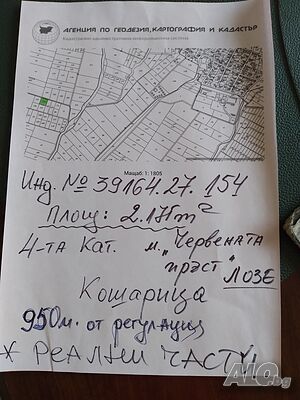 АГЕНЦИЯ ПО ГЕОДЕЗИЯ, КАРТОГРАФИЯ И КАДАСТЪР
Кадастрално-административна информационна система
Мащаб: 1: 1805
Инд. № 39164.27.154
Площ: 2.175m²
4-та Кат. м. „Червената
пръст" ЛОЗЕ
Кошарица
950м. от регулация
* РЕАЛНИ ЧАСТИ!
ALO.bg